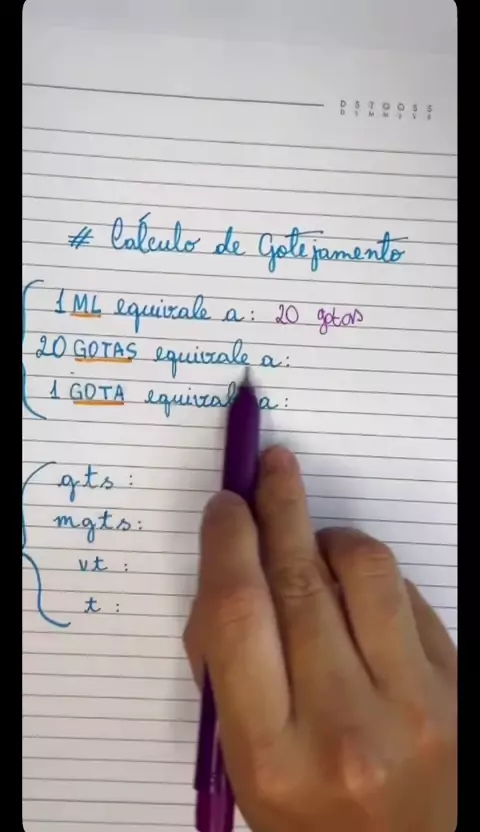 D S T Q Q S S
D S M M
# Cálculo de Gotejamento
1 ML equivale a: 20 gotas
20 GOTAS equivale a:
1 GOTA equival a:
gts :
mgts:
vt :
t :